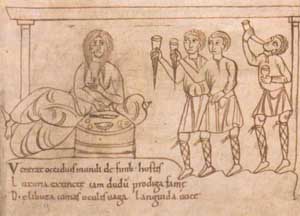 Venerat occiduis mundi de finib: hostis
Luxuria extincte iam dudū prodiga fame
Delibuta comas oculis uaga languida uoce